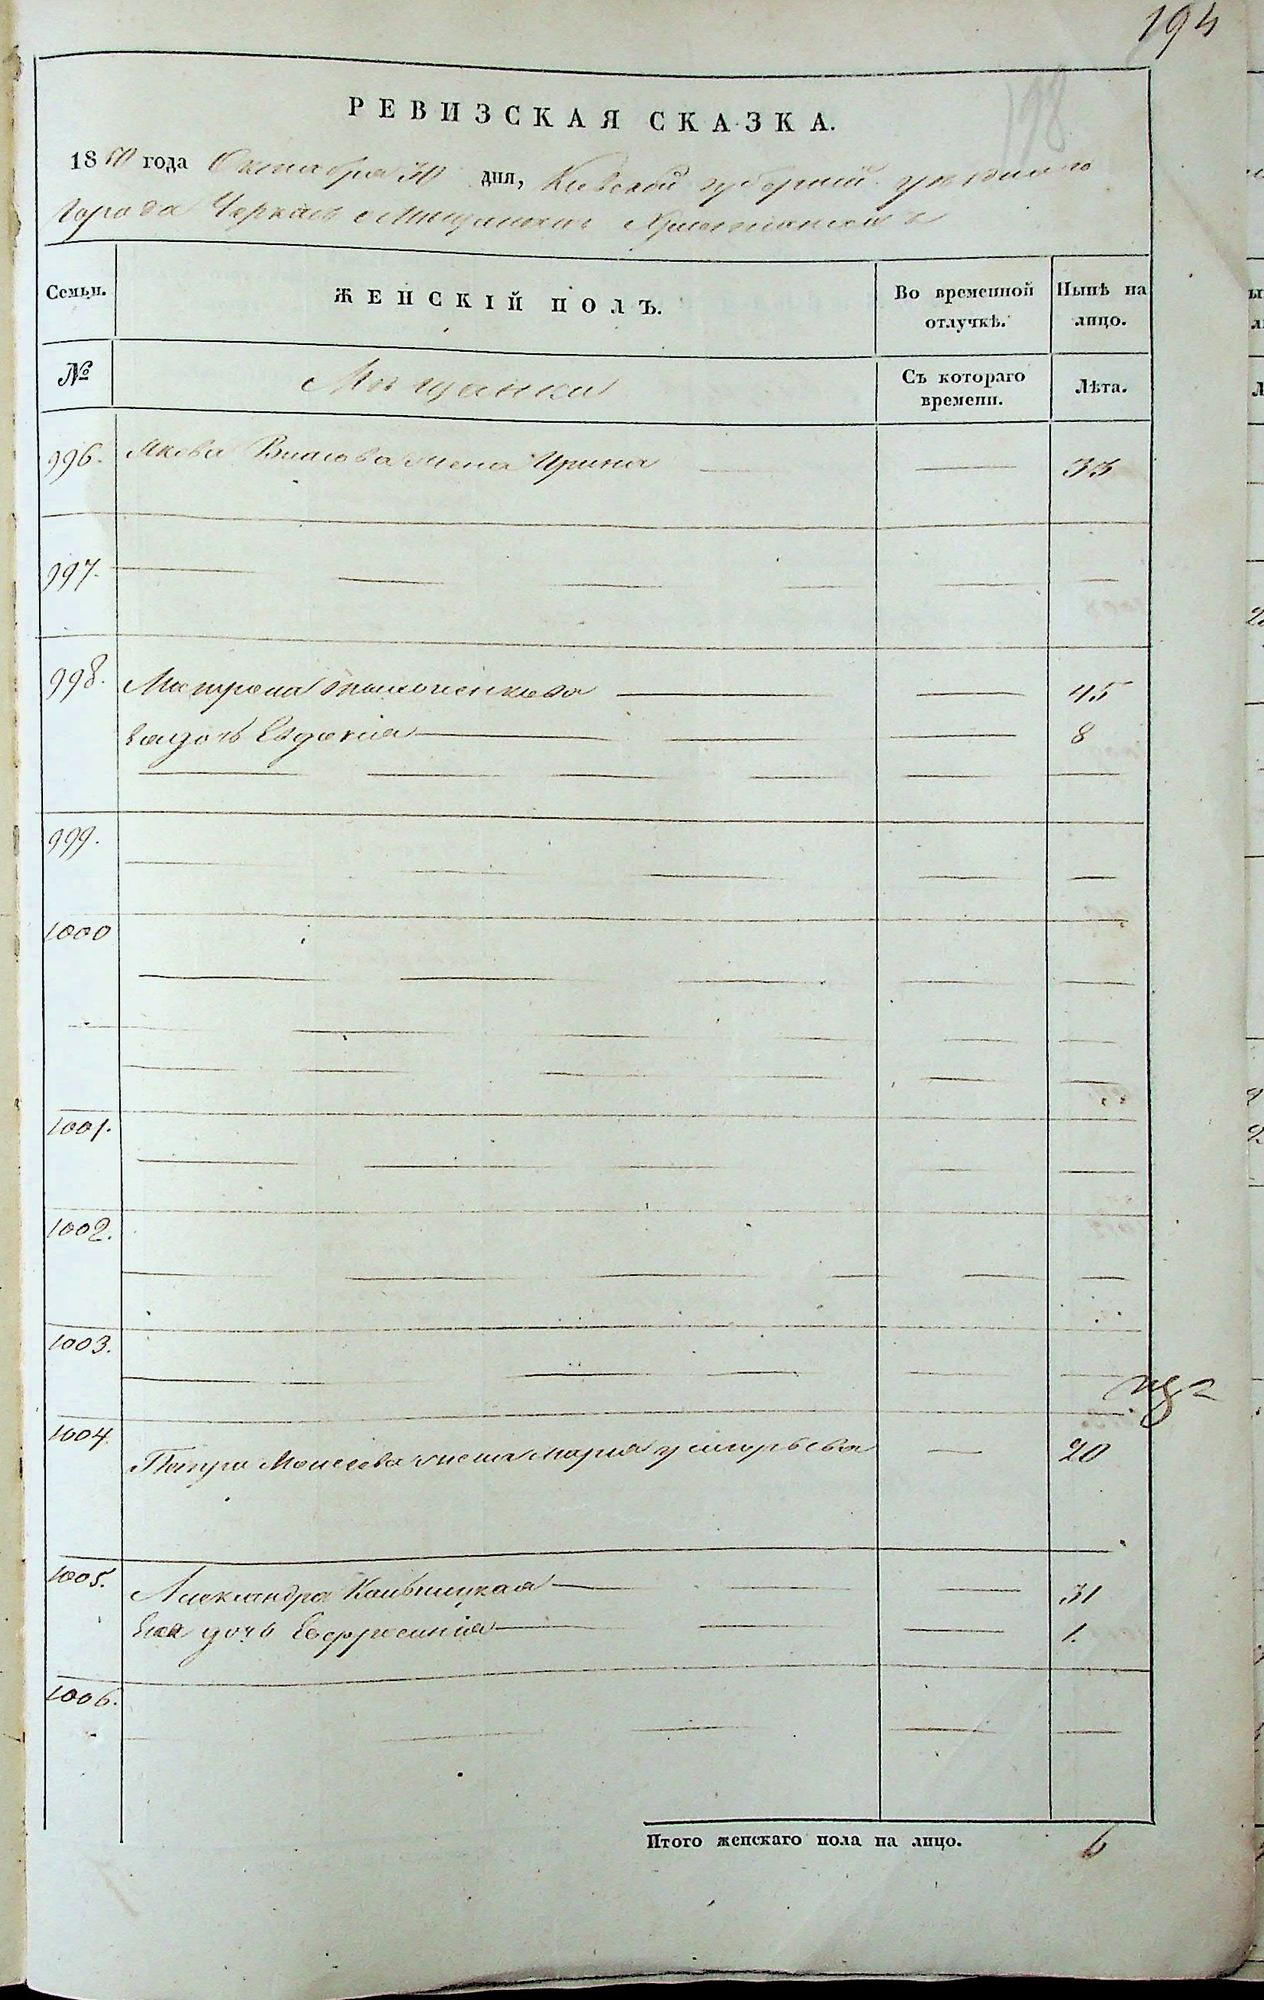 194
198
РЕВИЗСКАЯ СКАЗКА.
1850 года Октября 30 дня, Киевской губернии уезднаго
Города Черкас о Мещанах Христианах
Семьи. ЖЕНСКІЙ ПОЛЪ. Во временной отлучкѣ. Нынѣ на лицо.
№ Мещанки Съ котораго времени. Лѣта.
996. Якова Власова жена Ирина 33
997.
998. Матрона 45
Ея дочь Евдокия 8
999.
1000
1001.
1002.
1003.
1004. Петра Моисеева жена Мария Григорьева 20
1005. Александра 31
Ея дочь Евфросиния 1.
1006.
Итого женскаго пола на лицо. 6